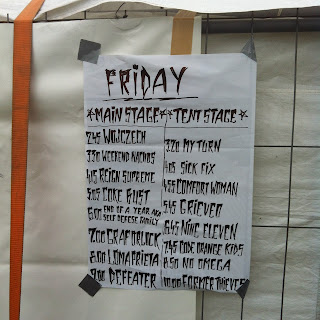 FRIDAY
*MAIN STAGE*
245 WOJCZECH
330 WEEKEND NACHOS
415 REIGN SUPREME
505 COKE BUST
600 END OF A YEAR AKA
SELF DEFENSE FAMILY
700 GRAF ORLOCK
800 LOMA PRIETA
900 DEFEATER
*TENT STAGE*
320 MY TURN
405 SICK FIX
455 COMFORT WOMAN
545 GRIEVED
645 NINE ELEVEN
745 CODE ORANGE KIDS
850 NO OMEGA
10.00 FORMER THIEVES